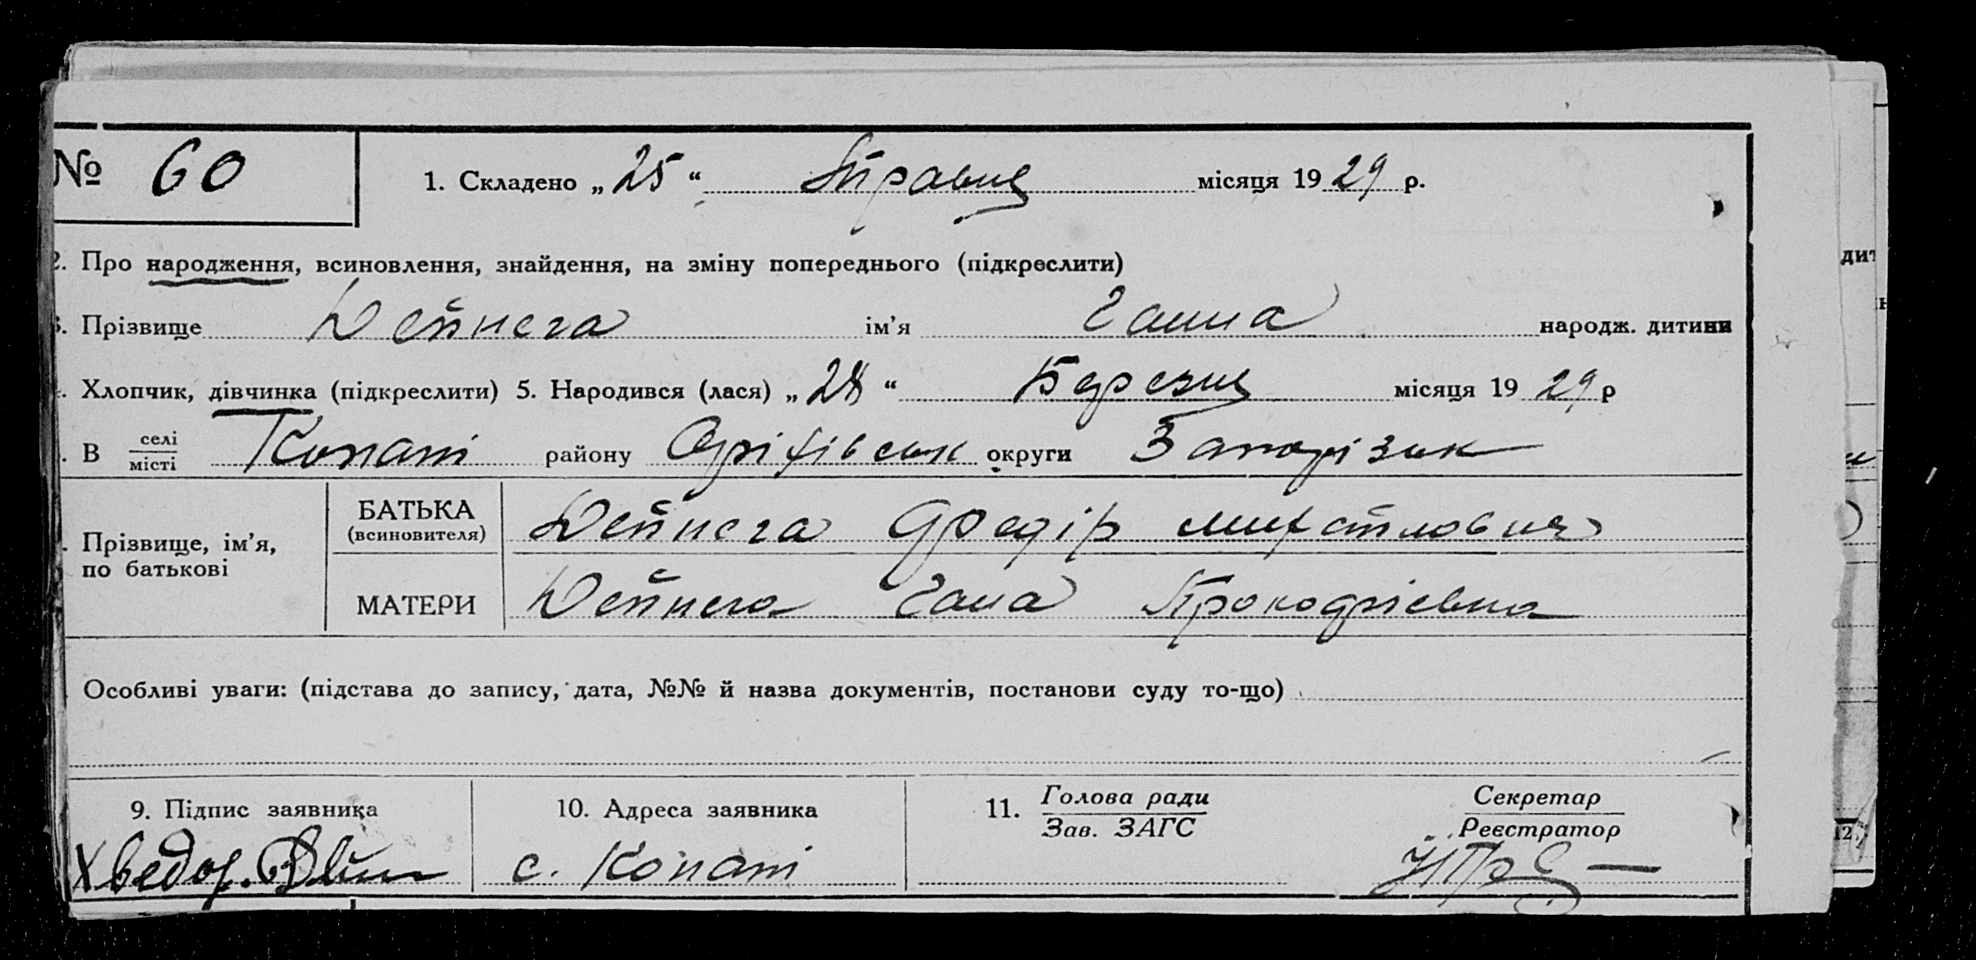 № 60 1. Складено „ 25 “ Травня місяця 19 29 р.
2. Про народження, всиновлення, знайдення, на зміну попереднього (підкреслити)
3. Прізвище Дейнега ім’я Ганна народж. дитини
Хлопчик, дівчинка (підкреслити) 5. Народився (лася) „ 28 “ Березня місяця 19 29 р
В селі місті Копані району Оріхівськ округи Запорізьк
Прізвище, ім’я, по батькові
БАТЬКА (всиновителя) Дейнега Федір
МАТЕРИ Дейнега Гана Прокофіевна
Особливі уваги: (підстава до запису, дата, №№ й назва документів, постанови суду то-що)
9. Підпис заявника 10. Адреса заявника 11. Голова ради Секретар
Зав. ЗАГС Реєстратор
Хведор. с. Копані